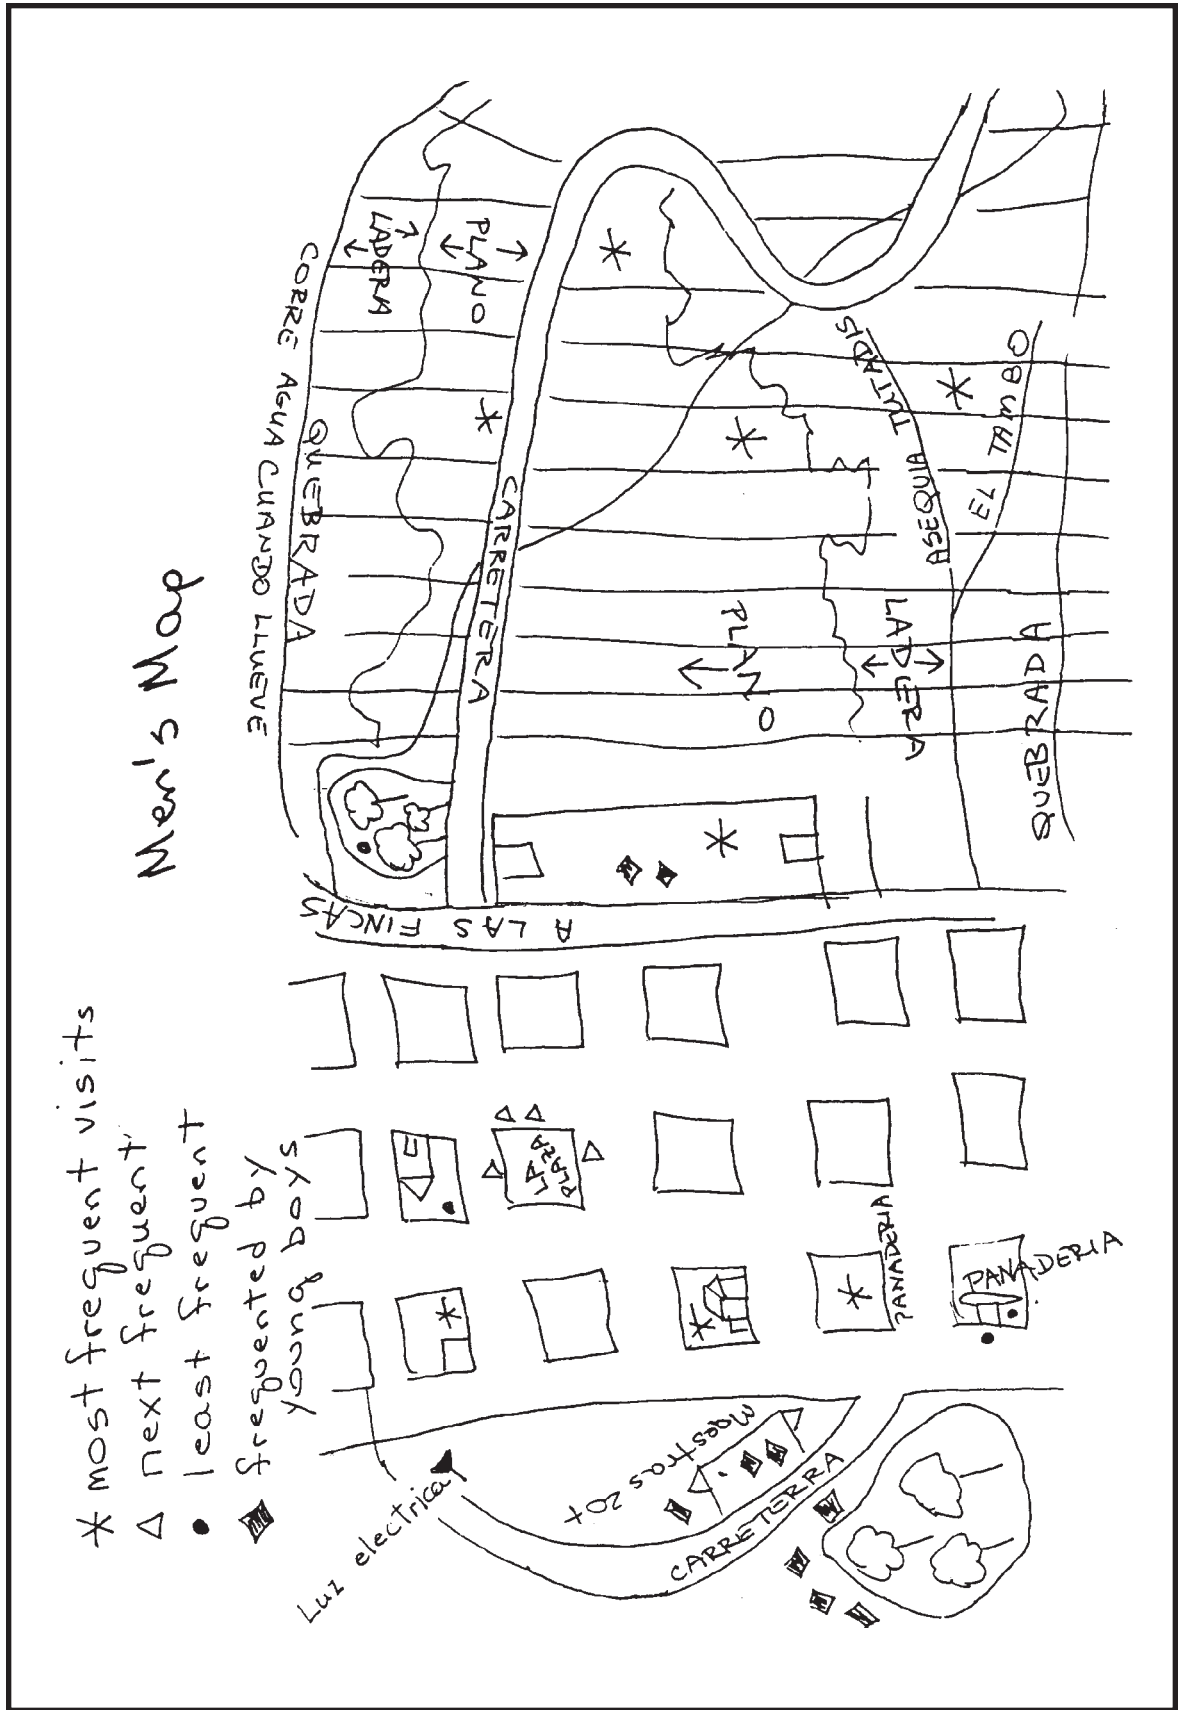 Men's Map
* most frequent visits
△ next frequent
● least frequent
frequented by
young boys
CORRE AGUA CUANDO LLUEVE
QUEBRADA
LADERA
PLANO
CARRETERA
ASEQUIA TUTADIS
EL TAMBO
PLANO
LADERA
QUEBRADA
A LAS FINCAS
LA
PLAZA
PANADERIA
PANADERIA
Maestras 20+
CARRETERRA
Luz electrica